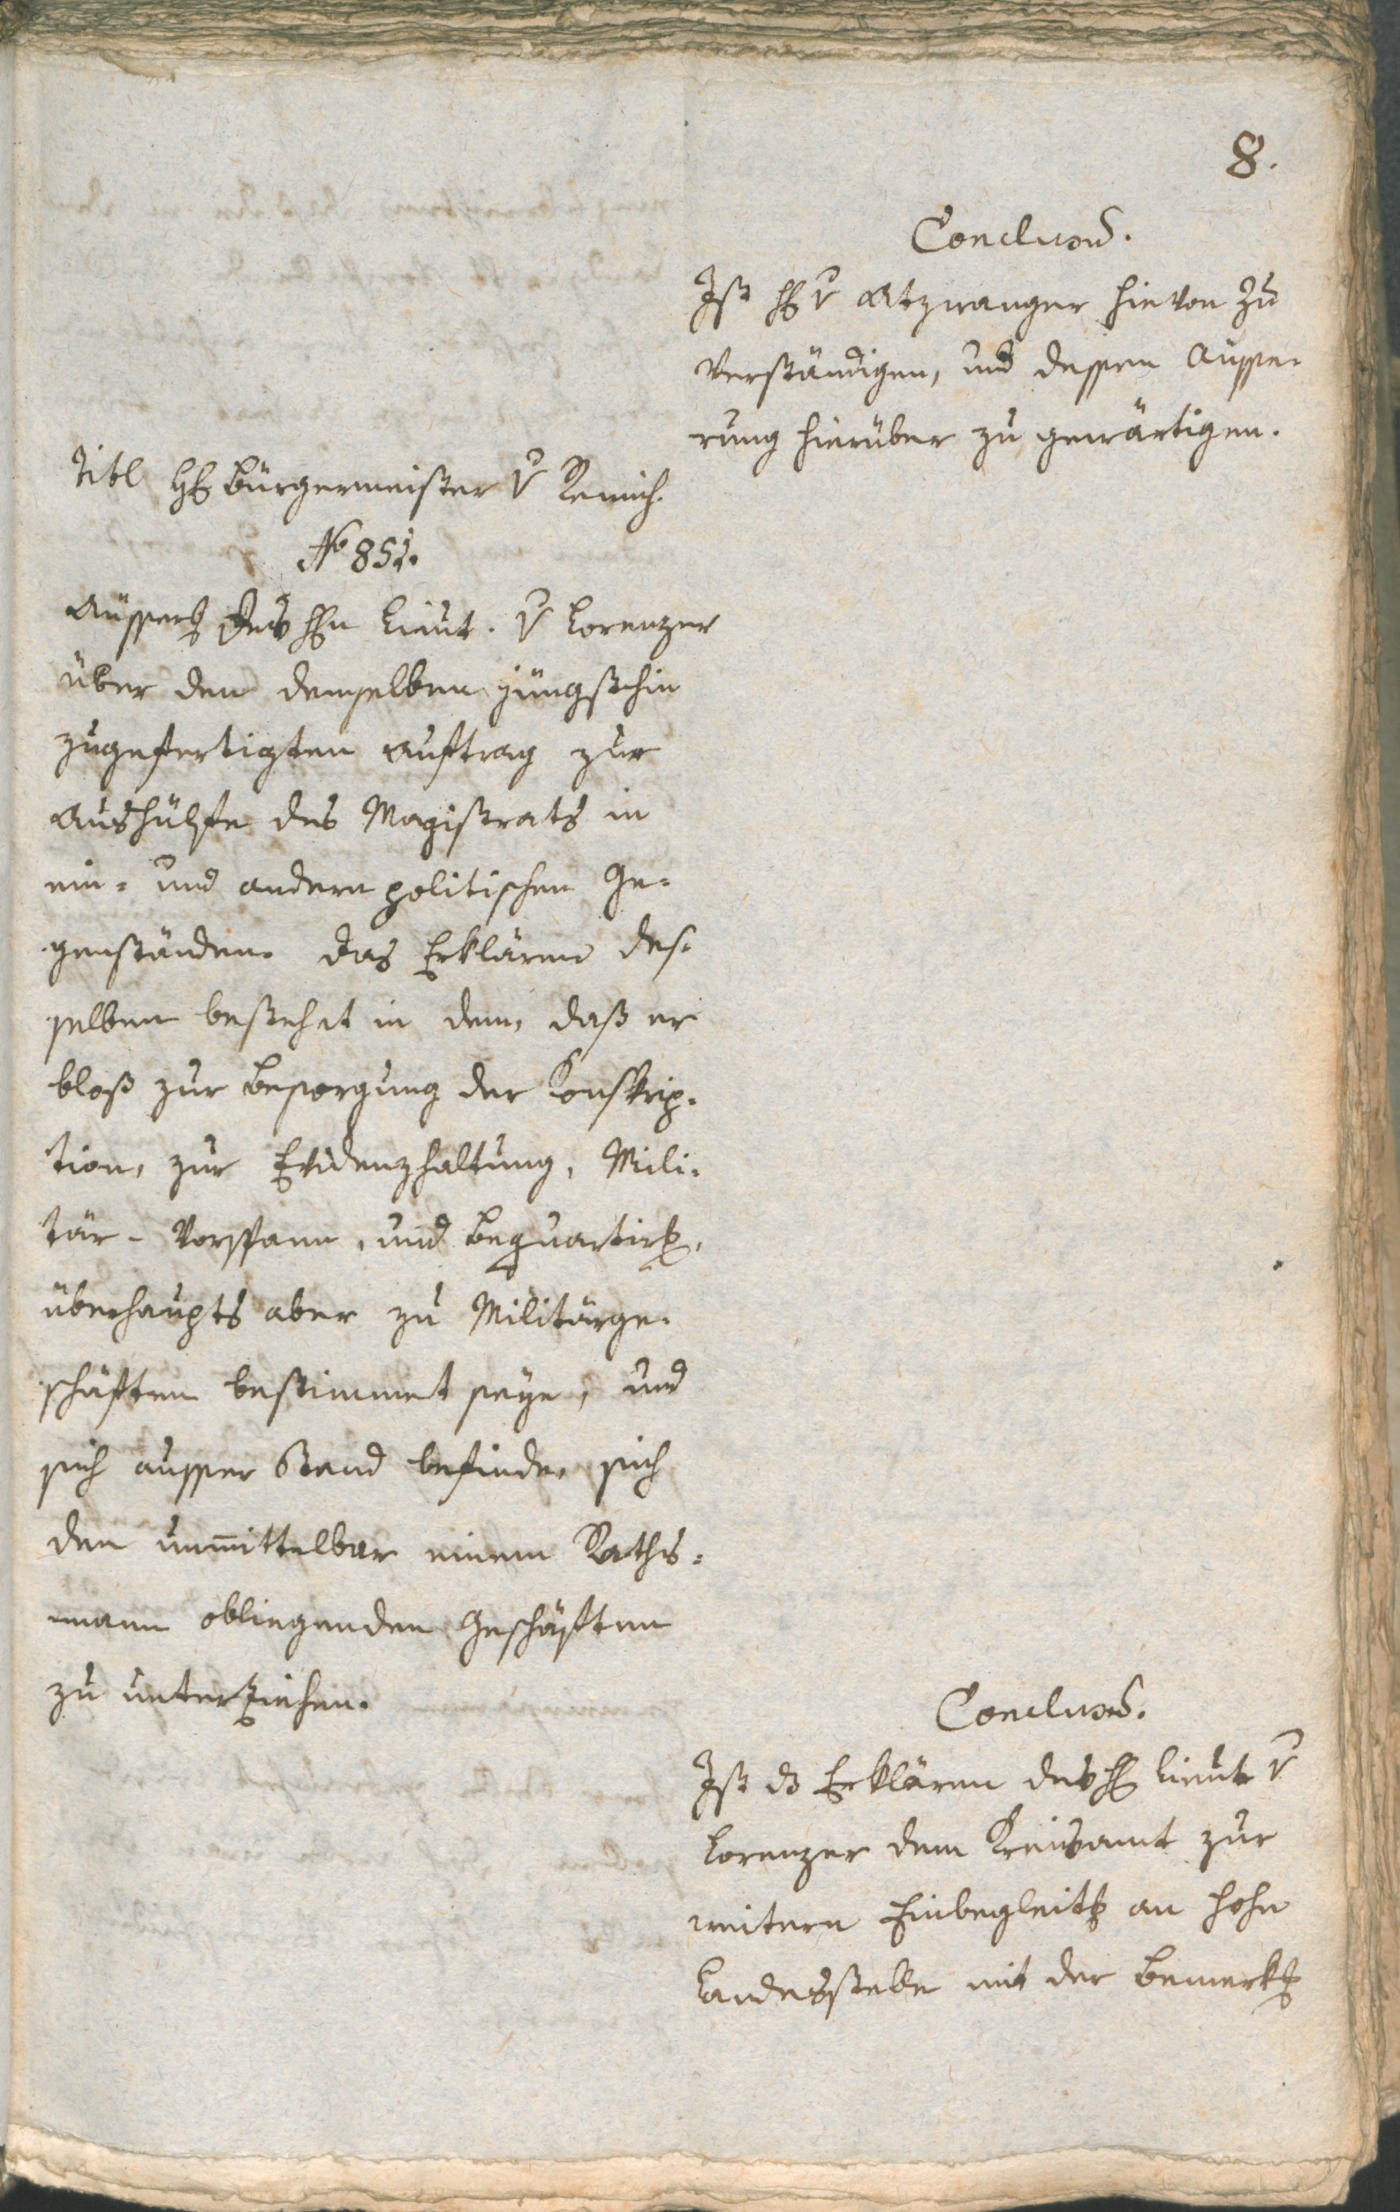 8.
Conclusum.
Ist H v Atzwanger hievon zu
verständigen, und dessen Äusse-
rung hierüber zu gewärtigen.
Titl H Bürgermeister v Remich.
No 851.
Äusserg des Hn Lieut. v Lorenzer
über den demselben jüngsthin
zugefertigten Auftrag zur
Aushülfe des Magistrats in
ein- und andern politischen Ge-
genständen. Das Erklären des-
selben bestehet in dem, daß er
bloß zur Besorgung der Conskrip-
tion, zur Evidenzhaltung, Mili-
tär-Vorspann, und Bequartirg,
überhaupts aber zu Militärge-
schäften bestimmet seye, und
sich ausser Stand befinde, sich
den unmittelbar einem Raths-
mann obliegenden Geschäften
zu unterziehen.
Conclusum.
Ist das Erklären des H Lieut v
Lorenzer dem Kreisamt zur
weitern Einbegleitg an hohe
Landesstelle mit der Bemerkg